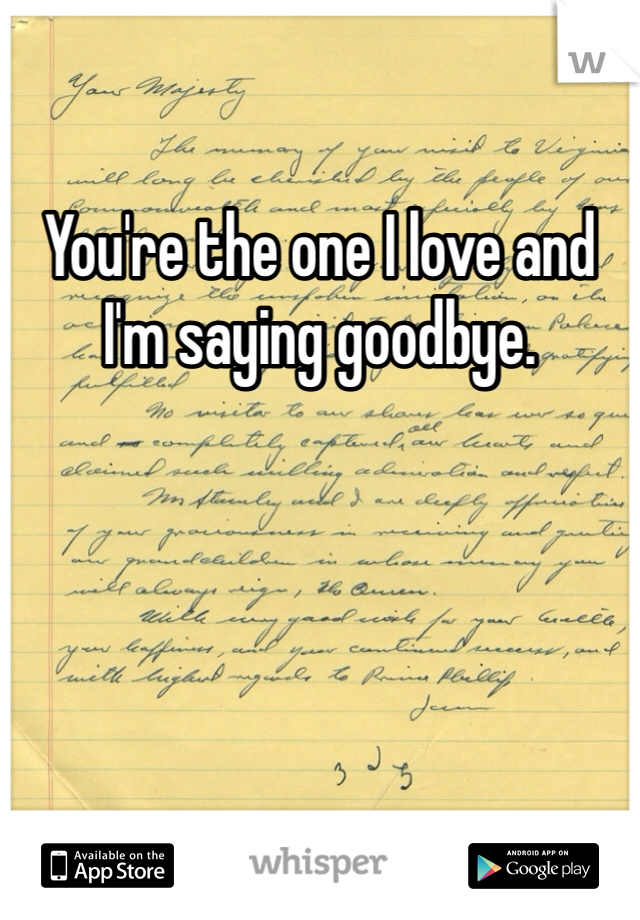 w
Your Majesty
The memory of your visit to Virginia
will long be cherished by the people of our
Commonwealth and most especially by Mrs
You're the one I love and
recognize the unspoken invitation, on the
I'm saying goodbye.
gratifying
fulfilled
No visitor to our shores has ever so
and completely captured all our hearts and
claimed such willing admiration and respect.
Mrs Stanley and I are deeply appreciative
of your graciousness in receiving and greeting
our grandchildren in whose memory you
will always reign, the Queen.
With very good wish for your health,
your happiness, and your continued success, and
with highest regards to Prince Phillip.
Available on the
App Store
whisper
ANDROID APP ON
Google play